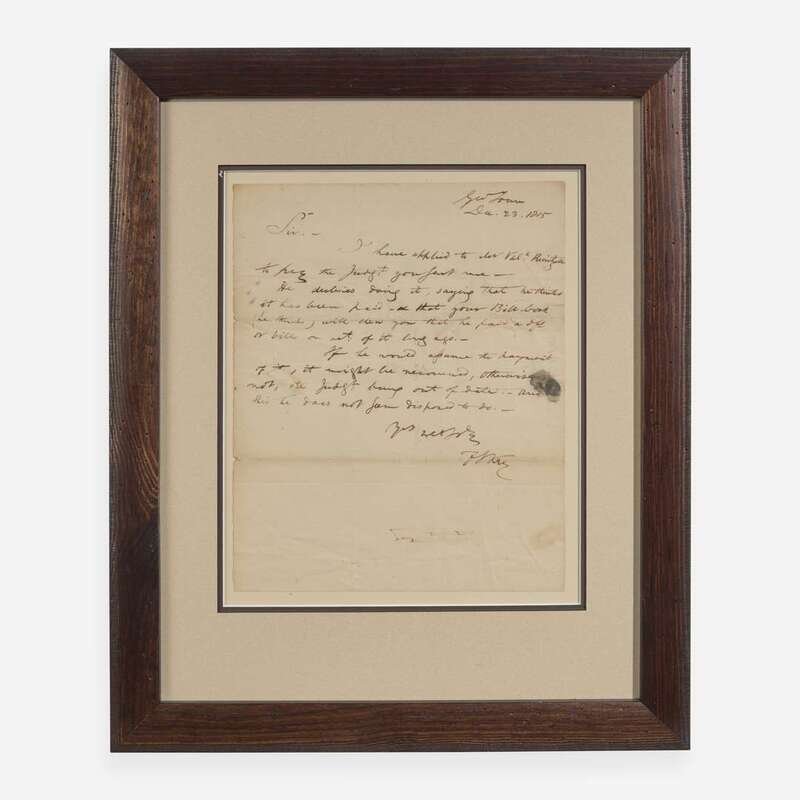 Geo Town
Dec. 23. 1815
Sir. -
I have applied to Mr Val.
to pay the Judgt you sent me -
He declines doing it, saying that he thinks
it has been paid - that your Bill book
he thinks, will shew you that he paid a
or bill on act. of it long ago. -
If he would assume the payment
of it, it might be recovered, otherwise
not, the Judgt being out of date. - And
this he does not seem disposed to do. -
F S Key